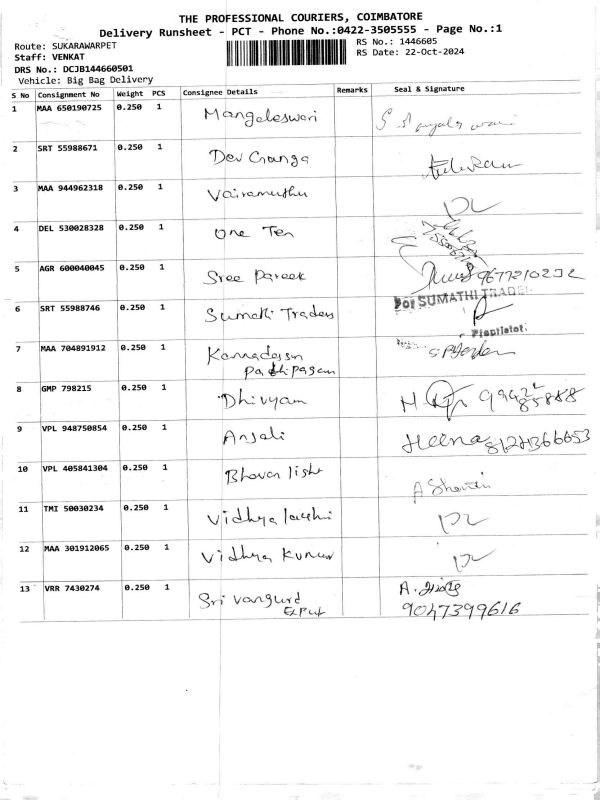 THE PROFESSIONAL COURIERS, COIMBATORE
Delivery Runsheet - PCT - Phone No.:0422-3505555 - Page No.:1
Route: SUKARAWARPET
RS No.: 1446605
Staff: VENKAT
RS Date: 22-Oct-2024
DRS No.: DCJB144660501
Vehicle: Big Bag Delivery
S No Consignment No Weight PCS Consignee Details Remarks Seal & Signature
1 MAA 650190725 0.250 1 Mangaleswari
2 SRT 55988671 0.250 1 Dev Ganga
3 MAA 944962318 0.250 1 Vairamuthu
4 DEL 530028328 0.250 1 One Ten
5 AGR 600040045 0.250 1 Sree Pareek 9677210232
6 SRT 55988746 0.250 1 Sumathi Traders For SUMATHI TRADE
Proprietor
7 MAA 704891912 0.250 1 Kannadasan
Pathipagam
8 GMP 798215 0.250 1 Dhivyam
9 VPL 948750854 0.250 1 Anjali Heena
10 VPL 405841304 0.250 1
11 TMI 50030234 0.250 1 Vidhya
12 MAA 301912065 0.250 1 Vidhya Kumar
13 VRR 7430274 0.250 1 Sri A.
9047399616